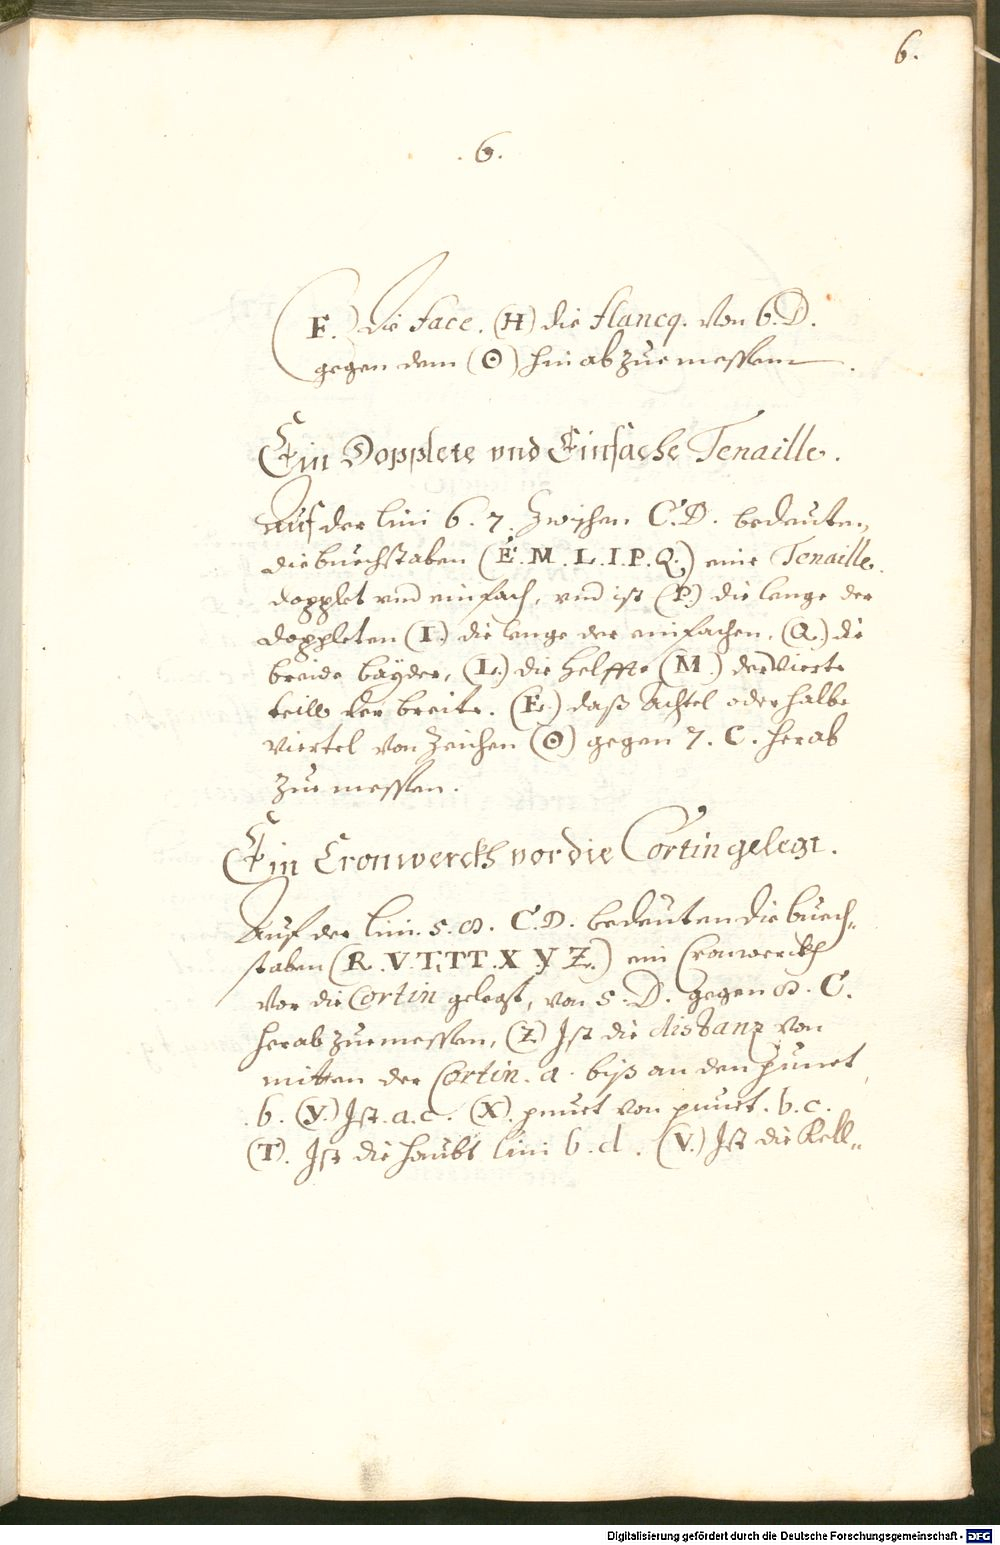 6.
. 6.
(F.) die face. (H) die flancq. von 6. D.
gegen dem (⊙) hinab zue messen.
Ein Dopplete vnd Einfache Tenaille.
Auf der lini 6. 7. Zwischen C. D. bedeuten,
die buechstaben (E. M. L. I. P. Q.) eine Tenaille.
dopplet vnd einfach, vnd ist (P.) die lenge der
doppleten (I.) die lenge der einfachen, (Q.) die
breide bayder, (L.) die helffte (M.) der Vierte
teill der breite. (E.) daß Achtel oder halbe
viertel von Zeichen (⊙) gegen 7. C. herab
Zue messen.
Ein Cronwerckh vor die Cortin gelegt.
Auf der lini. 5. ∞. C. D. bedeuten die buech-
staben (R. V. T. TT. X. Y. Z.) ein Cronwerckh
vor die Cortin gelegt, von 5. D. gegen ∞. C.
herab Zue messen, (Z) Ist die distanz von
mitten der Cortin. a. biß an den punct
. b. (Y.) Ist. a. c. (X) punct von punct. b. c.
(T). Ist die haubt lini b. d. (V.) Ist die Kell-
Digitalisierung gefördert durch die Deutsche Forschungsgemeinschaft - DFG